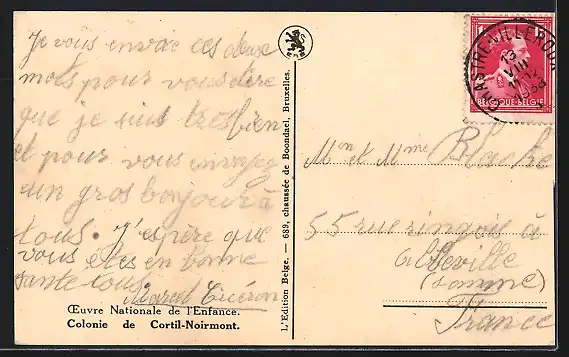 Je vous envoie ces deux
mots pour vous dire
que je suis tres bien
et pour vous envoyez
un gros bonjour à
tous. J'espère que
vous êtes en bonne
sante tous.
Marcel Cicéron
Œuvre Nationale de l'Enfance.
Colonie de Cortil-Noirmont.
L'Edition Belge. — 689, chaussée de Boondael, Bruxelles.
CHASTRE-VILLEROUX
13
VIII
BELGIQUE-BELGIE
Mon et Mme Blache
55 rue ringois à
abbeville
(somme)
France